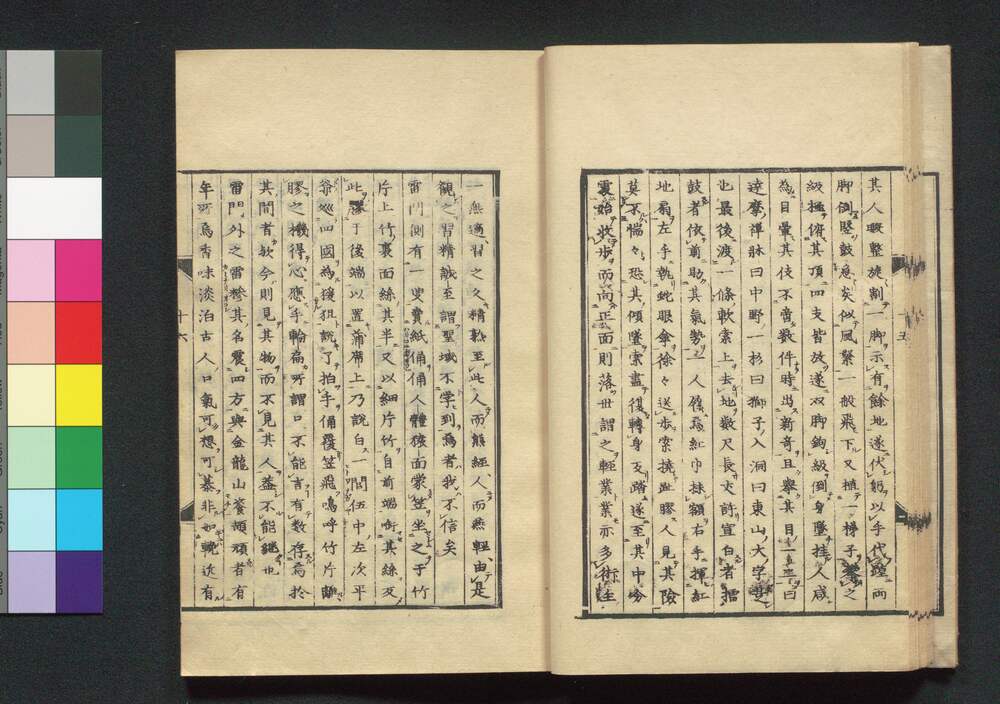 其人暇整旋劃一脚示有餘地遂伏躬以手代踵兩
脚倒竪鼓急矣似風繫一般飛下又植一梯子之
級極俯其頂四支皆放遂双脚鉤級倒身墜挂人咸
為目暈其伎不啻数件時出新奇且舉其目一二三曰
達摩禪牀曰中野一杉曰獅子入洞曰東山大字
也最後渡一條軟索上去地数尺長丈許宣白者搢
鼓者依前助其氣勢一人便蔫紅巾抹額右手揮紅
地扇左手執蛇眼傘徐々送歩索撓趾膠人見其險
莫不惴々恐其傾墜索盡復轉身及踏遂至其中央
震始收歩而向正面則落世謂之輕業業亦多術往
一無適習之久精熟至此人而熊經人而燕輕由是
觀之習精誠至謂聖域不学到焉者我不信矣
雷門側有一叟賣紙俑俑人體猿面蒙笠坐之于竹
片上竹裏面絲其半又以細片竹自前端銜其絲反
此膠于後端以置蒲席上乃說白一閻伍中左次平
爺巡四國為獲狙説了拍手俑覆笠飛鳴呼竹片離
膠之機得心應手輪扁所謂口不能言有数存焉於
其間者欤今則見其物而不見其人蓋不能繼也
雷門外之雷糝其名震四方與金龍山餈頡頏者有
年所焉香味淡泊古人口氣可想可慕非如輓近有
十六